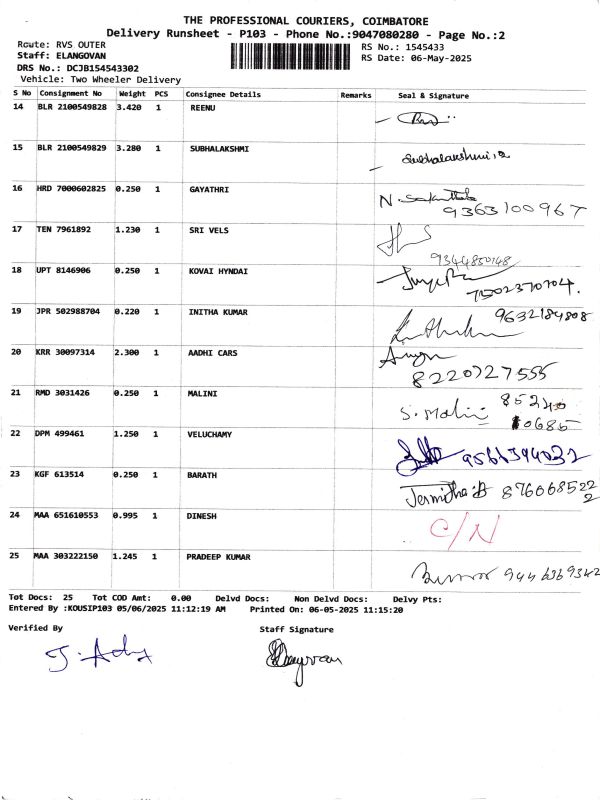 THE PROFESSIONAL COURIERS, COIMBATORE
Delivery Runsheet - P103 - Phone No.:9047080280 - Page No.:2
Route: RVS OUTER
RS No.: 1545433
Staff: ELANGOVAN
RS Date: 06-May-2025
DRS No.: DCJB154543302
Vehicle: Two Wheeler Delivery
S No Consignment No Weight PCS Consignee Details Remarks Seal & Signature
14 BLR 2100549828 3.420 1 REENU
15 BLR 2100549829 3.280 1 SUBHALAKSHMI
Subhalakshmi
16 HRD 7000602825 0.250 1 GAYATHRI
N.
9363100967
17 TEN 7961892 1.230 1 SRI VELS
9344850148
18 UPT 8146906 0.250 1 KOVAI HYNDAI
7502370704.
19 JPR 502988704 0.220 1 INITHA KUMAR
9632184808
20 KRR 30097314 2.300 1 AADHI CARS
8220727555
21 RMD 3031426 0.250 1 MALINI
S. Malini
22 DPM 499461 1.250 1 VELUCHAMY
23 KGF 613514 0.250 1 BARATH
8760685222
24 MAA 651610553 0.995 1 DINESH
C/N
25 MAA 303222150 1.245 1 PRADEEP KUMAR
Tot Docs: 25 Tot COD Amt: 0.00 Delvd Docs: Non Delvd Docs: Delvy Pts:
Entered By :KOUSIP103 05/06/2025 11:12:19 AM Printed On: 06-05-2025 11:15:20
Verified By Staff Signature